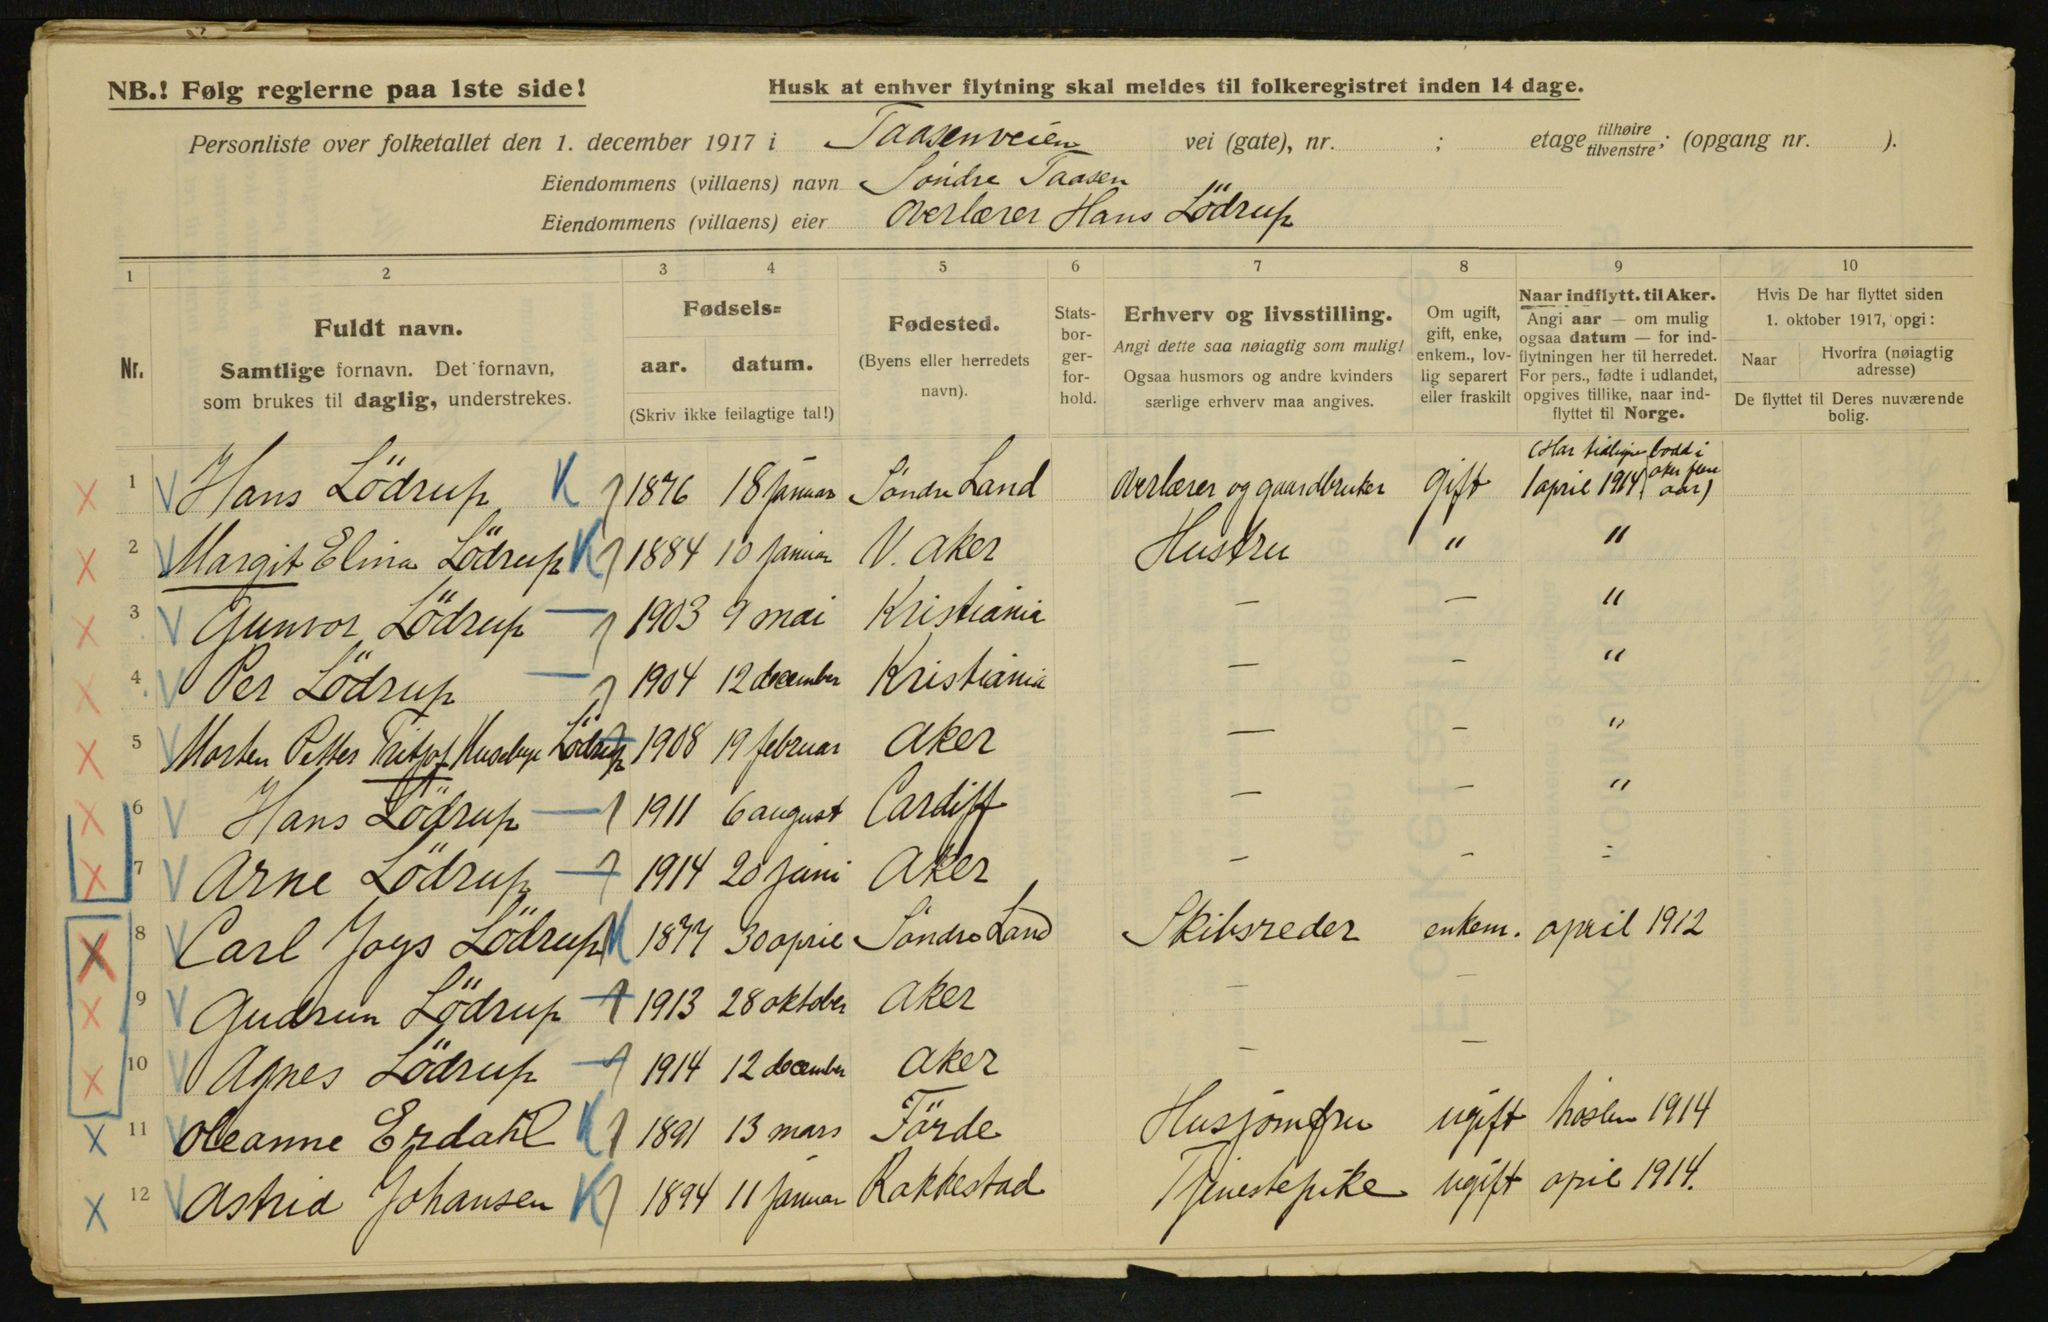 NB.! Følg reglerne paa 1ste side!
Husk at enhver flytning skal meldes til folkeregistret inden 14 dage.
Personliste over folketallet den 1. december 1917 i Taasenveien vei (gate), nr. ; etage tilhøire tilvenstre; (opgang nr. ).
Eiendommens (villaens) navn Söndre Taasen
Eiendommens (villaens) eier Overlærer Hans Lödrup
1 2 3 4 5 6 7 8 9 10
Nr.
Fuldt navn.
Samtlige fornavn. Det fornavn,
som brukes til daglig, understrekes.
Fødsels=
aar. datum.
(Skriv ikke feilagtige tal!)
Fødested.
(Byens eller herredets
navn).
Stats-
bor-
ger-
for-
hold.
Erhverv og livsstilling.
Angi dette saa nøiagtig som mulig!
Ogsaa husmors og andre kvinders
særlige erhverv maa angives.
Om ugift,
gift, enke,
enkem., lov-
lig separert
eller fraskilt
Naar indflytt. til Aker.
Angi aar — om mulig
ogsaa datum — for ind-
flytningen her til herredet.
For pers., fødte i udlandet,
opgives tillike, naar ind-
flyttet til Norge.
Hvis De har flyttet siden
1. oktober 1917, opgi:
Naar Hvorfra (nøiagtig
adresse)
De flyttet til Deres nuværende
bolig.
(Har tidligere bodd i
aker
aar)
1 Hans Lödrup K 1876 18 januar Söndre Land Overlærer og gaardbruker gift 1 april 1914
2 Margit Elina Lödrup K 1884 10 januar V. Aker Hustru " "
3 Gunvor Lödrup — 1903 9 mai Kristiania — — "
4 Per Lödrup — 1904 12 december Kristiania — - "
5 Morten Petter Fritjof Huseby Lödrup 1908 19 februar Aker — - "
6 Hans Lödrup — 1911 6 august Cardiff — - "
7 Arne Lödrup — 1914 20 juni Aker - - "
8 Carl Joys Lödrup K 1877 30 april Söndre Land Skibsreder enkem. april 1912
9 Gudrun Lödrup — 1913 28 oktober Aker - -
10 Agnes Lödrup — 1914 12 december Aker - —
11 Oleanne Erdahl K 1891 13 mars Förde Husjomfru ugift hösten 1914
12 Astrid Johansen K 1894 11 januar Rakkestad Tjenestepike ugift april 1914.